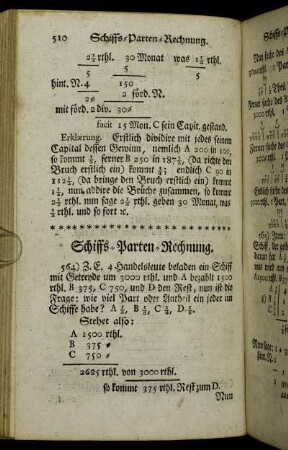 510 Schiffs-Parten-Rechnung.
2½ rthl. 30 Monat was 1¼ rthl.
5 5
hint. N. 4 150
2 förd. N.
mit förd. 2 div. 30
facit 15 Mon. C sein Capit. gestand.
Erklärung. Erstlich dividire mit jedes seinem
Capital dessen Gewinn, nemlich A 200 in 100,
so kommt ½, ferner B 250 in 187½, (da richte den
Bruch erstlich ein) kommt ¾; endlich C 90 in
112½, (da bringe den Bruch erstlich ein) kommt
1¼, nun addire die Brüche zusammen, so kommt
2½ rthl. nun sage 2½ rthl. geben 30 Monat, was
½ rthl. und so fort ꝛc.
Schiffs-Parten-Rechnung.
564) Z. E. 4 Handelsleute beladen ein Schiff
mit Getreyde um 3000 rthl. und A bezahlt 1500
rthl. B 375, C 750, und D den Rest, nun ist die
Frage: wie viel Part oder Antheil ein jeder im
Schiffe habe? A ½, B ⅛, C ¼, D ⅛.
Stehet also:
A 1500 rthl.
B 375 〃
C 750 〃
2625 rthl. von 3000 rthl.
so kommt 375 rthl. Rest zum D.
Nun